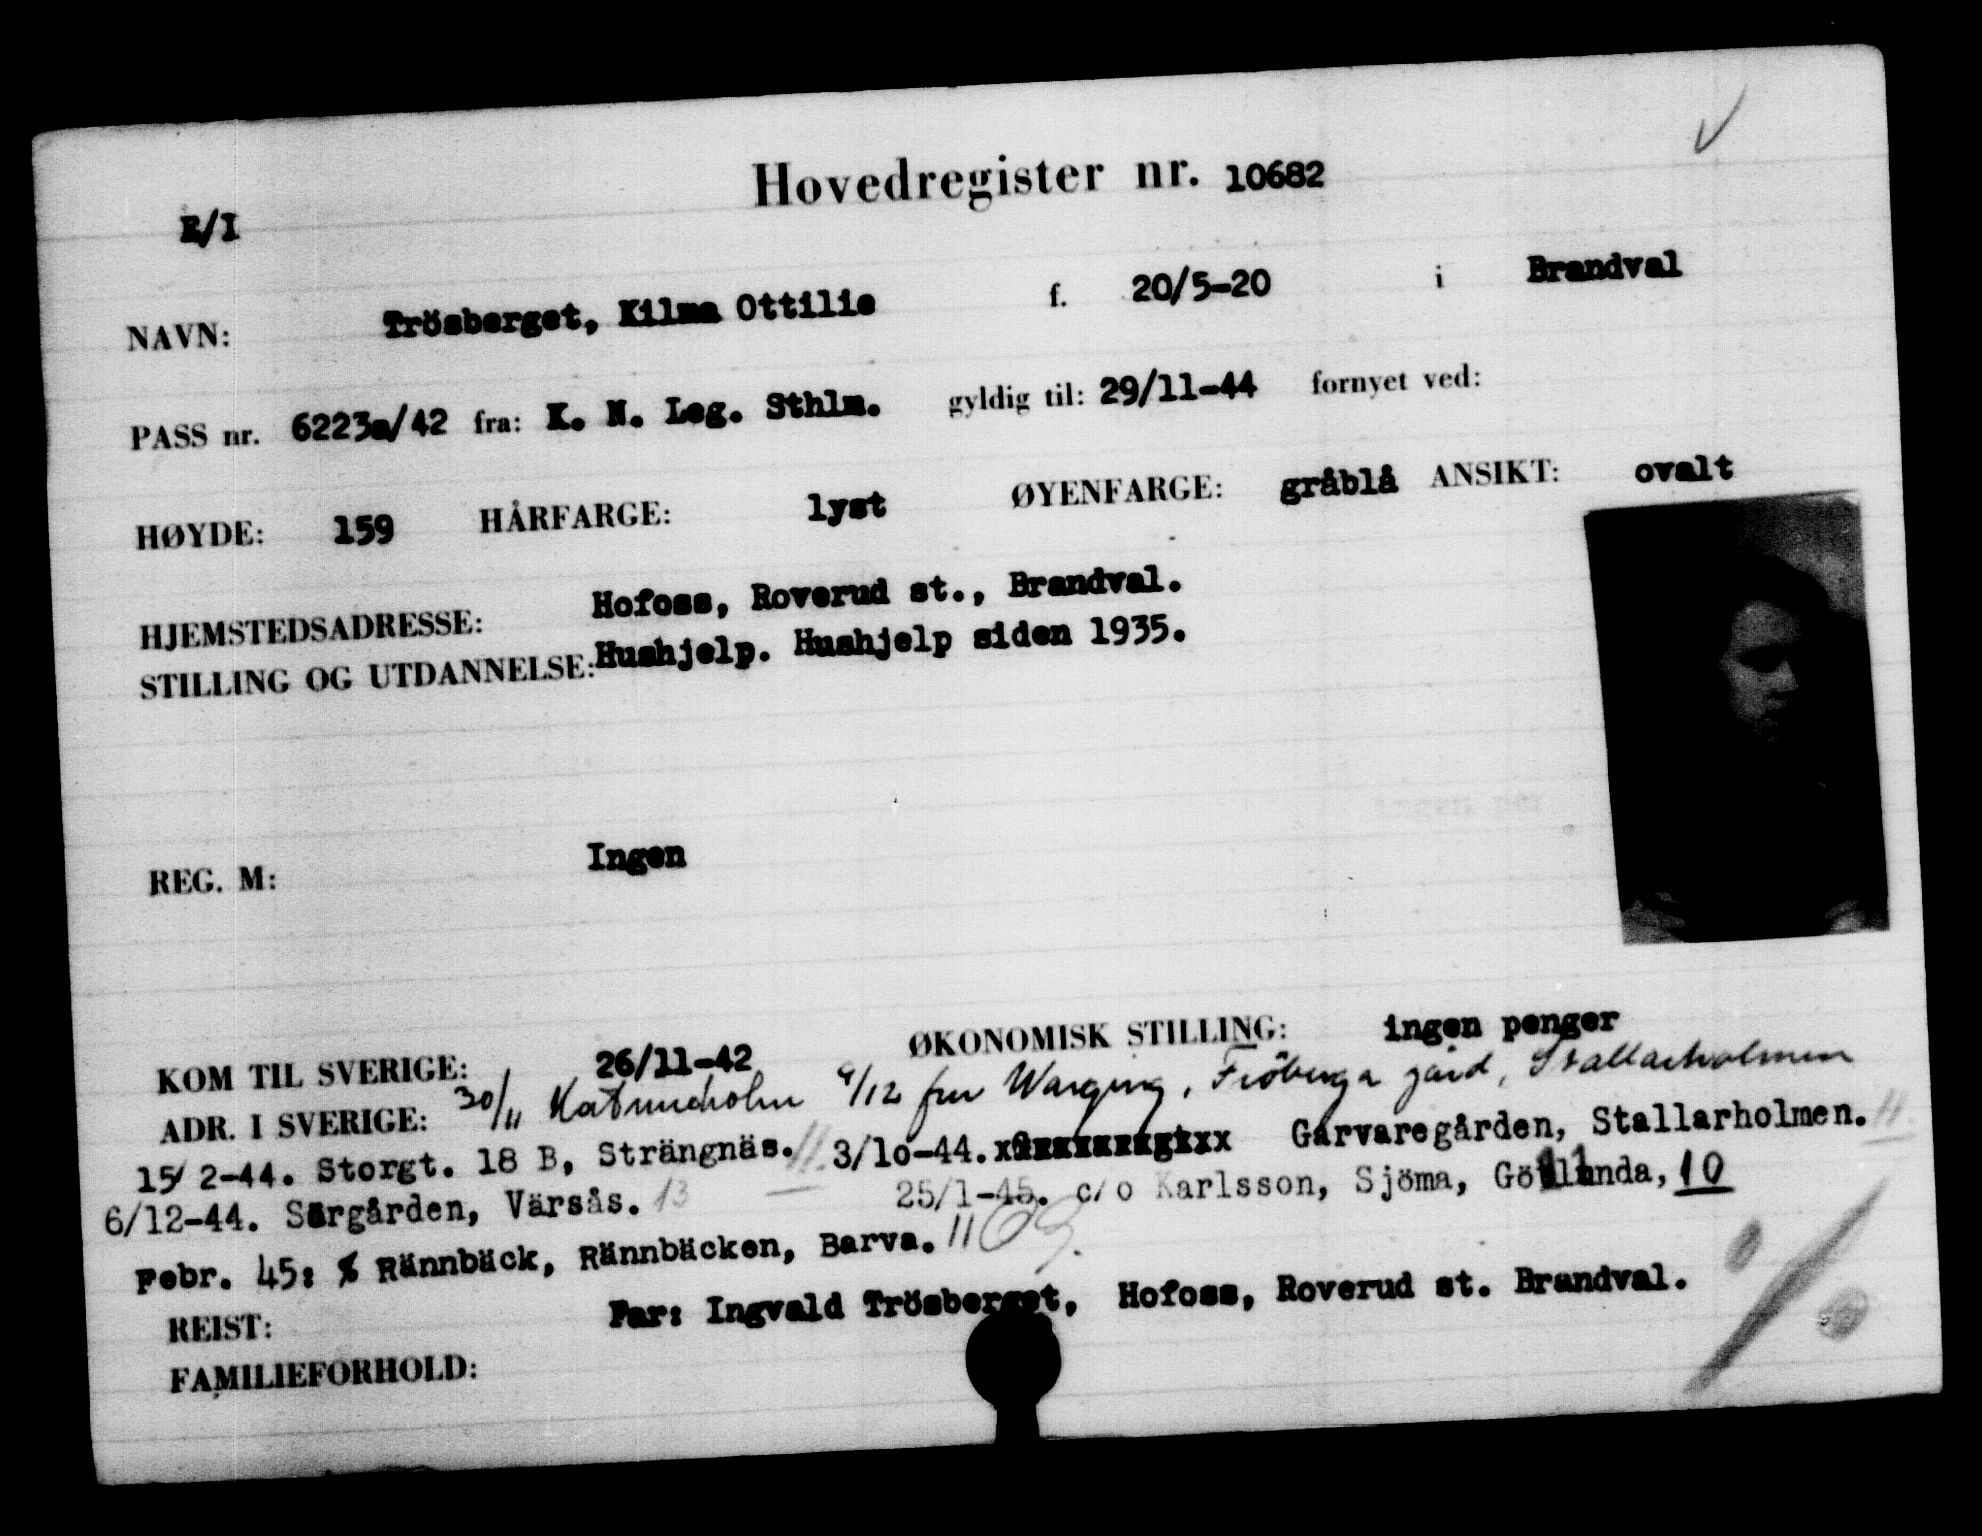 Hovedregister nr. 10682
E/I
NAVN: Trösberget, Kilma Ottilie f. 20/5-20 i Brandval
PASS nr. 6223a/42 fra: K. N. Leg. Sthlm. gyldig til: 29/11-44 fornyet ved:
HØYDE: 159 HÅRFARGE: lyst ØYENFARGE: gråblå ANSIKT: ovalt
HJEMSTEDSADRESSE: Hofoss, Roverud st., Brandval.
STILLING OG UTDANNELSE: Hushjelp. Hushjelp siden 1935.
REG. M: Ingen
KOM TIL SVERIGE: 26/11-42 ØKONOMISK STILLING: ingen penger
ADR. I SVERIGE: 30/11 Katrineholm 9/12 fru Warging, Fröberga gård, Stallarholmen
15/2-44. Storgt. 18 B, Strängnäs. 11. 3/10-44. Garvaregården, Stallarholmen. 11
6/12-44. Sörgården, Värsås. 13 25/1-45. c/o Karlsson, Sjöma, Götlunda, 10
Febr. 45: % Rännbäck, Rännbäcken, Barva. 11
REIST: Far: Ingvald Trösberget, Hofoss, Roverud st. Brandval.
FAMILIEFORHOLD: